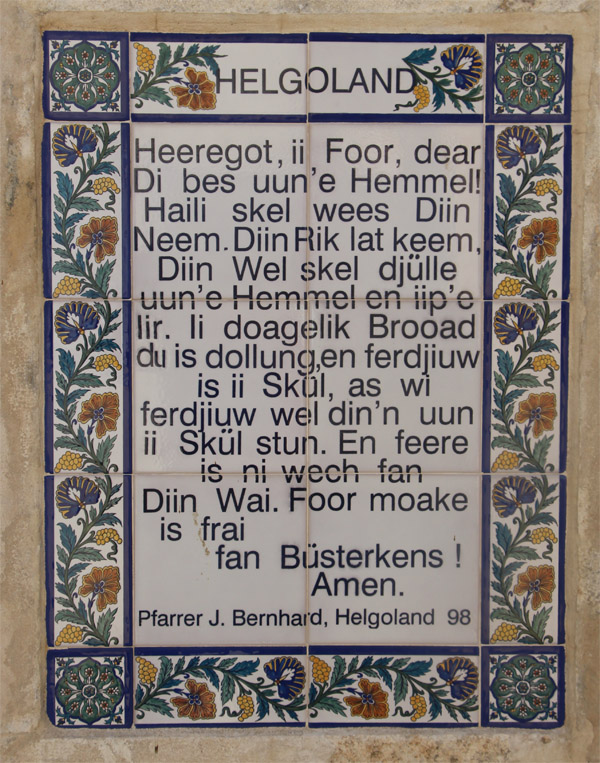 HELGOLAND
Heeregot, ii Foor, dear
Di bes uun'e Hemmel!
Haili skel wees Diin
Neem. Diin Rik lat keem,
Diin Wel skel djülle
uun'e Hemmel en iip'e
Iir. Ii doagelik Brooad
du is dollung,en ferdjiuw
is ii Skül, as wi
ferdjiuw wel din'n uun
ii Skül stun. En feere
is ni wech fan
Diin Wai. Foor moake
is frai
fan Büsterkens !
Amen.
Pfarrer J. Bernhard, Helgoland 98